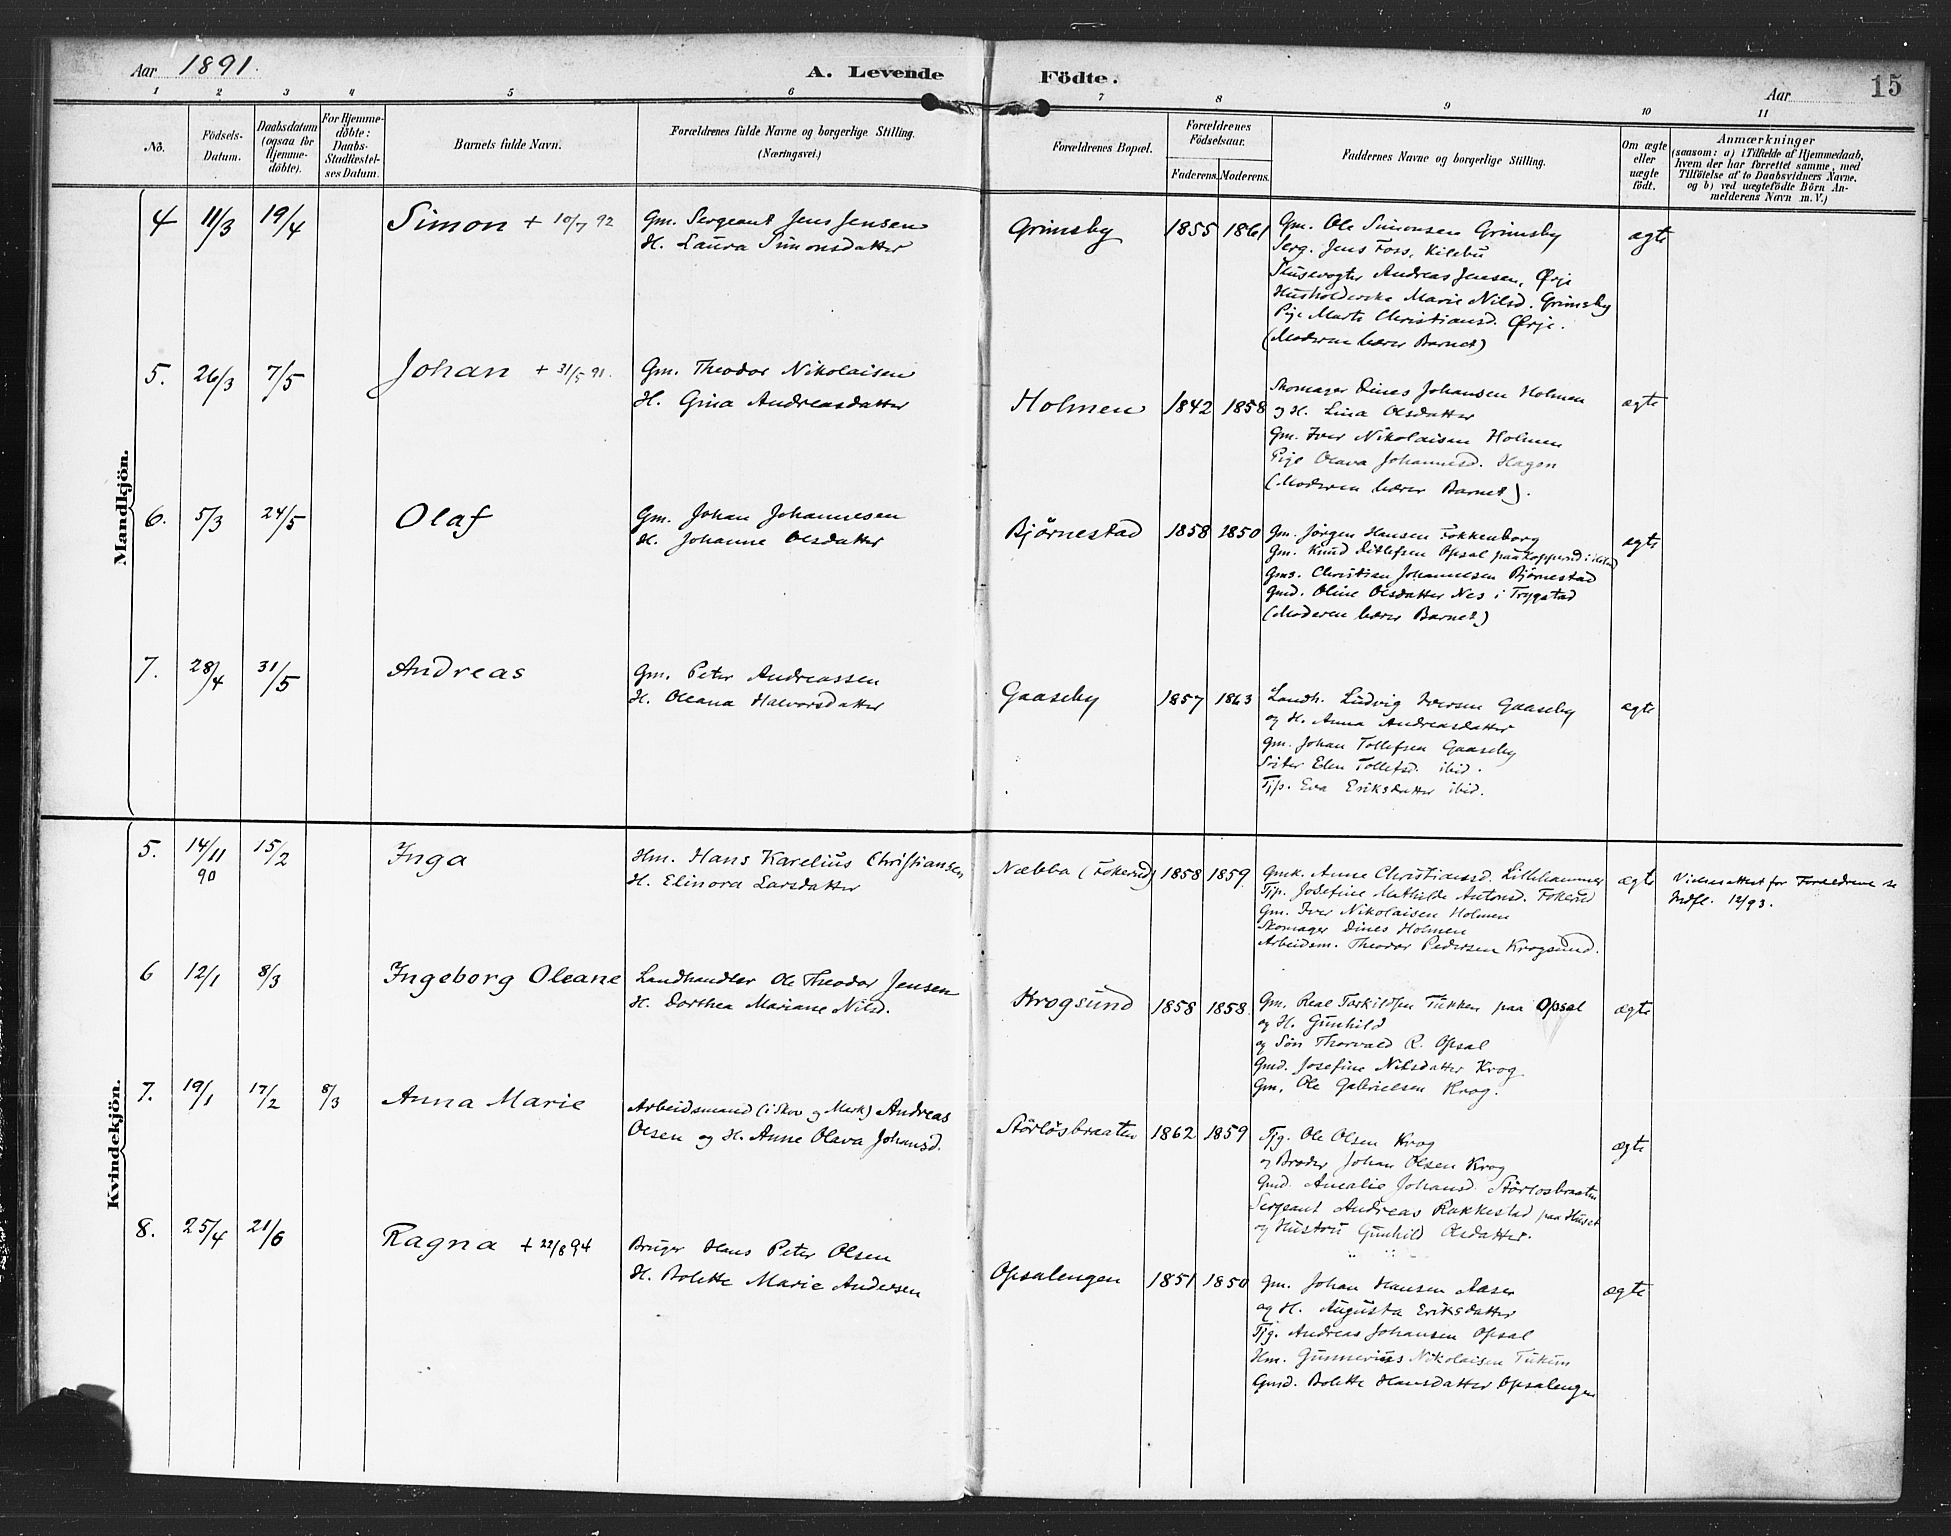 Aar 1891. A. Levende Födte. Aar 15
1 2 3 4 5 6 7 8 9 10 11
Nô.
Födsels-
Datum.
Daabsdatum
(ogsaa for
Hjemme-
döbte).
For Hjemme-
döbte:
Daabs-
Stadfæstel-
ses Datum.
Barnets fulde Navn.
Forældrenes fulde Navne og borgerlige Stilling.
(Næringsvei.)
Forældrenes Bopæl.
Forældrenes
Födselsaar.
Faderens. Moderens.
Faddernes Navne og borgerlige Stilling.
Om ægte
eller
uægte
födt.
Anmærkninger
(saasom: a) i Tilfælde af Hjemmedaab,
hvem der har forrettet samme, med
Tilföielse af to Daabsvidners Navne.
og b) ved uægtefödte Börn An-
melderens Navn m. V.)
Mandkjön.
4 11/3 19/4 Simon + 10/7 92
Gm. Sergeant Jens Jensen
H. Laura Simonsdatter
Grimsby 1855 1861
Gm. Ole Simonsen Grimsby
Serg. Jens Foss, Kilebu
Slusevogter Andreas Jensen, Ørje
Husholderske Marie Nilsd. Grimsby
Pige Marte Christiansd. Ørje.
(Moderen bærer Barnet)
ægte
5. 26/3 7/5 Johan + 31/5 91.
Gm. Theodor Nikolaisen
H. Gina Andreasdatter
Holmen 1842 1858
Skomager Dines Johansen Holmen
og H. Lina Olsdatter
Gm. Iver Nikolaisen Holmen
Pige Olava Johannesd. Hagen
(Moderen bærer Barnet).
ægte
6. 5/3 24/5 Olaf
Gm. Johan Johannesen
H. Johanne Olsdatter
Bjørnestad 1858 1850
Gm. Jørgen Hansen Fokkenborg
Gm. Knud Ditlefsen Opsal paa i
Gms. Christian Johannesen Bjørnestad
Gmd. Oline Olsdatter Nes i Trygstad
(Moderen bærer Barnet)
ægte
7. 28/4 31/5 Andreas
Gm. Peter Andreassen
H. Oleana Halvorsdatter
Gaaseby 1857 1863
Landh. Ludvig Iversen Gaaseby
og H. Anna Andreasdatter
Gm. Johan Tollefsen Gaaseby
Søster Elen Tollefsd. ibid.
Tjp. Eva Eriksdatter ibid.
ægte
Kvindekjön.
5. 14/11 90 15/2 Inga
Hm. Hans Karelius Christiansen
H. Elinora Larsdatter
Næbba (Fokerud) 1858 1859
Gmk. Anne Christiansd. Lillehammer
Tjp. Josefine Mathilde Antonsd. Fokerud
Gm. Iver Nikolaisen Holmen
Skomager Dines Holmen
Arbeidsm. Theodor Pedersen Krogsund.
ægte
Vielsesattest for Forældrene se
Indfl. 12/93.
6 12/1 8/3 Ingeborg Oleane
Landhandler Ole Theodor Jensen
H. Dorthea Mariane Nilsd.
Krogsund 1858 1858
Gm. Real Torkildsen Tukken paa Opsal
og H. Gunhild
og Søn Thorvald R. Opsal
Gmd. Josefine Nilsdatter Krog
Gm. Ole Gabrielsen Krog.
ægte
7. 19/1 17/2 8/3 Anna Marie
Arbeidsmand (i Skov og Mark) Andreas
Olsen og H. Anne Olava Johansd.
Störlösbraaten 1862 1859
Tjg. Ole Olsen Krog
og Broder Johan Olsen Krog
Gmd. Amalie Johansd. Störlosbraaten
Sergeant Andreas Rakkestad paa Huset
og Hustru Gunhild Olsdatter.
ægte
8. 25/4 21/6 Ragna + 22/8 94
Bruger Hans Peter Olsen
H. Bolette Marie Andersen
Opsalengen 1851 1850
Gm. Johan Hansen Aaser
og H. Augusta Eriksdatter
Tjg. Andreas Johansen Opsal
Hm. Gunnerius Nikolaisen Tukun
Gmd. Bolette Hansdatter Opsalengen
ægte